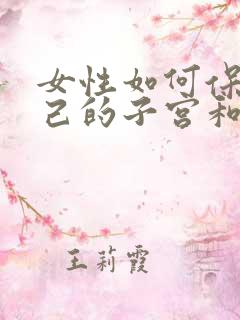 女性如何保
己的子宫和
王莉霞